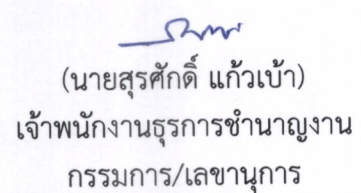 (นายสุรศักดิ์ แก้วเบ้า)
เจ้าพนักงานธุรการชำนาญงาน
กรรมการ/เลขานุการ